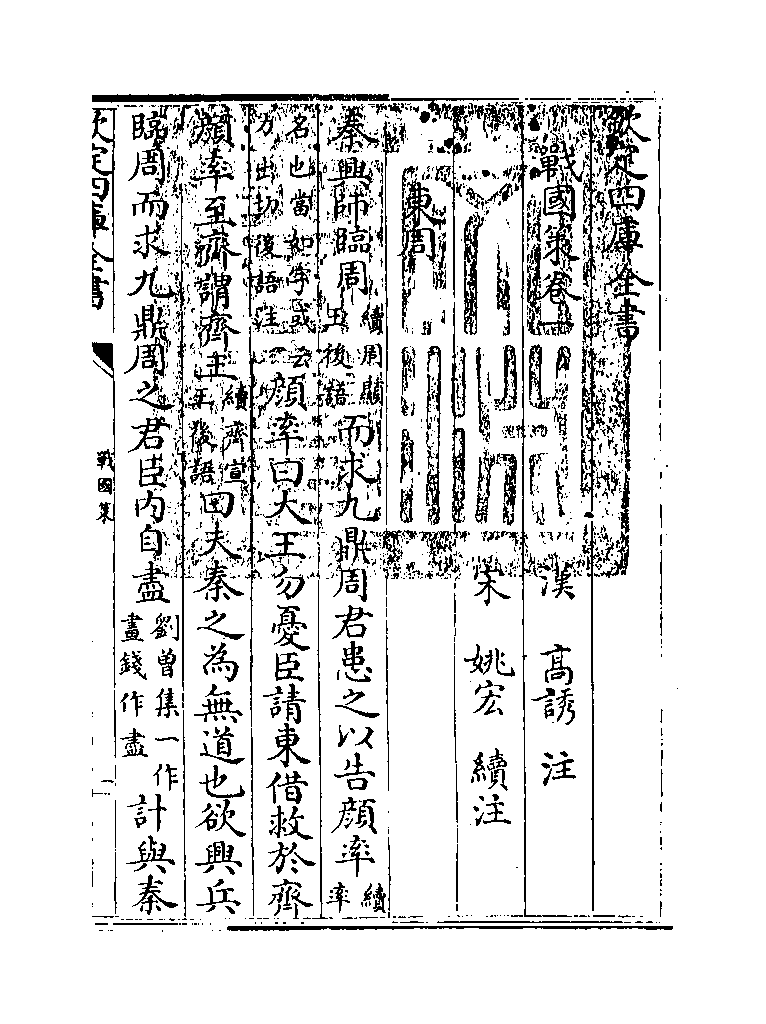 欽定四庫全書
戰國策卷一 漢 高誘 注
宋 姚宏 續注
東周
秦興師臨周續周顯王後語而求九鼎周君患之以告顔率續率
名也當如字或云力出切後語注顔率曰大王勿憂臣請東借救於齊
顔率至齊謂齊王續齊宣王後語曰夫秦之為無道也欲興兵
臨周而求九鼎周之君臣内自盡劉曾集一作畫錢作盡計與秦
欽定四庫全書
戰國策
一